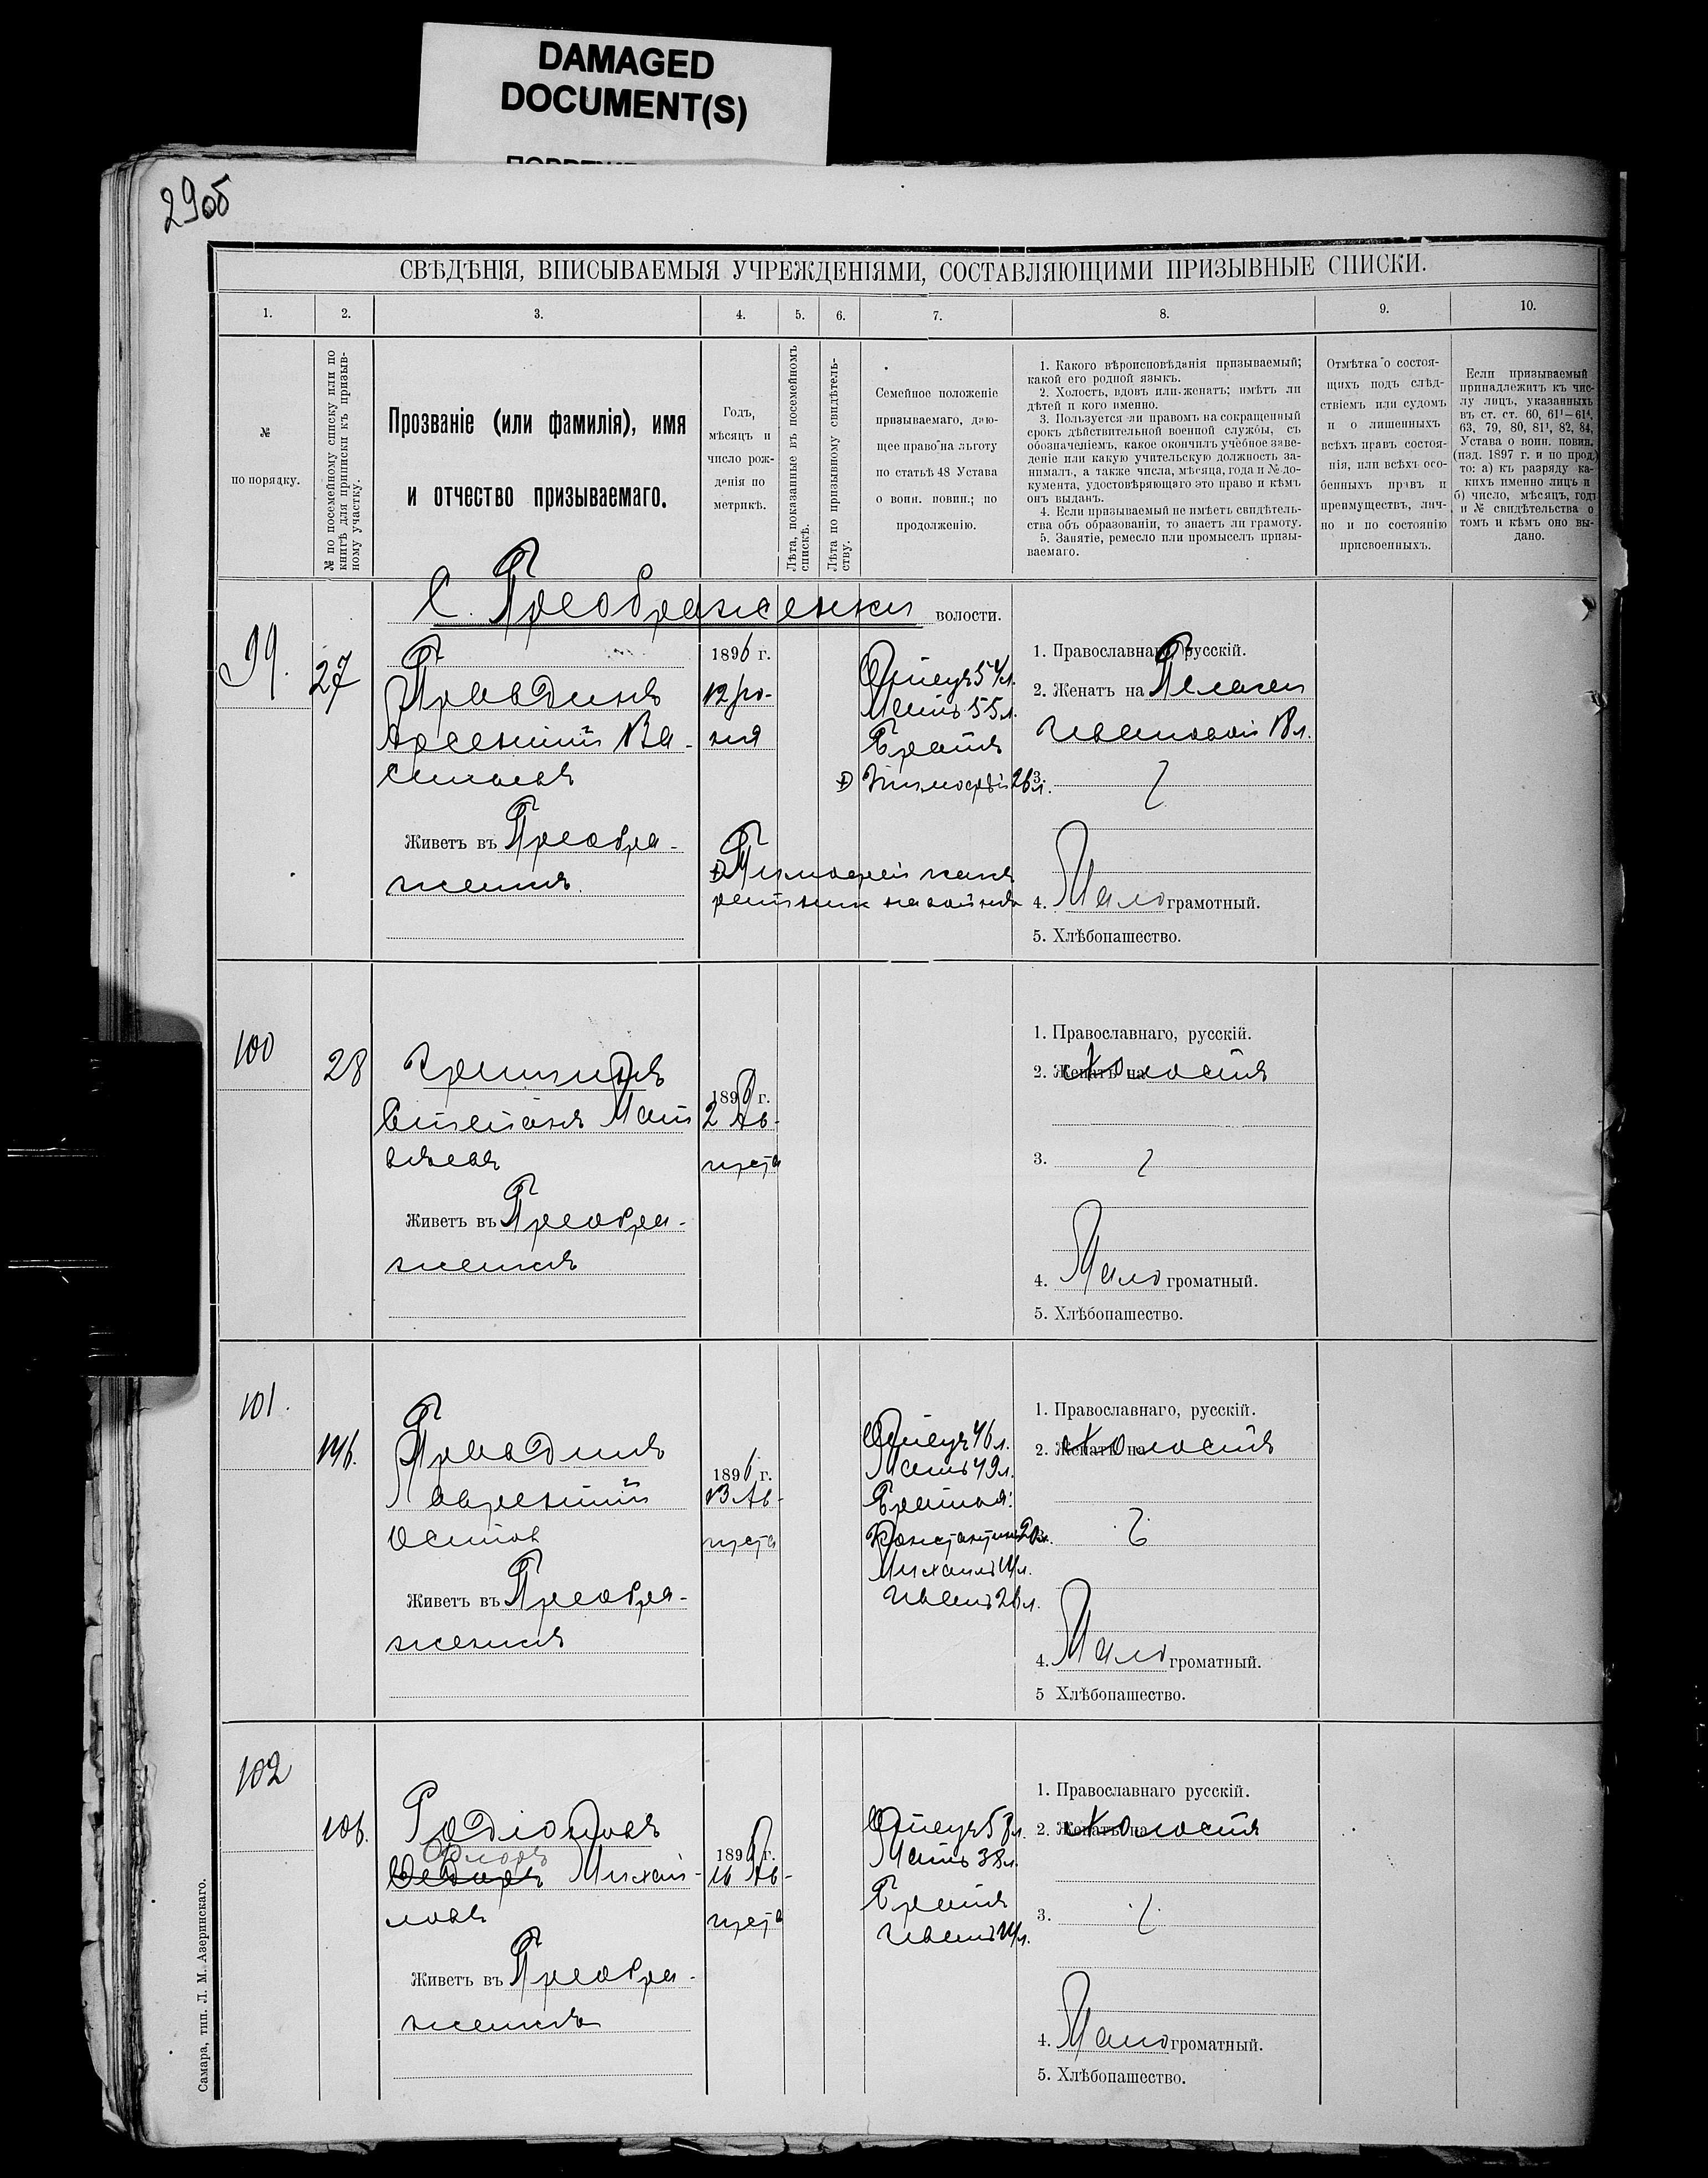 DAMAGED
DOCUMENT(S)
29об
СВѢДѢНІЯ, ВПИСЫВАЕМЫЯ УЧРЕЖДЕНІЯМИ, СОСТАВЛЯЮЩИМИ ПРИЗЫВНЫЕ СПИСКИ.
1. 2. 3. 4. 5. 6. 7. 8. 9. 10.
№
по порядку.
№ по посемейному списку или по
книгѣ для приписки къ призыв-
ному участку.
Прозваніе (или фамилія), имя
и отчество призываемаго.
Годъ,
мѣсяцъ и
число рож-
денія по
метрикѣ.
Лѣта, показанные въ посемейномъ
спискѣ.
Лѣта по призывному свидѣтель-
ству.
Семейное положеніе
призываемаго, даю-
щее право на льготу
по статьѣ 48 Устава
о воин. повин.; по
продолженію.
1. Какого вѣроисповѣданія призываемый;
какой его родной языкъ.
2. Холостъ, вдовъ или женатъ; имѣтъ ли
дѣтей и кого именно.
3. Пользуется ли правомъ на сокращенный
срокъ дѣйствительной военной службы, съ
обозначеніемъ, какое окончилъ учебное заве-
деніе или какую учительскую должность за-
нималъ, а также числа, мѣсяца, года и № до-
кумента, удостовѣряющаго это право и кѣмъ
онъ выданъ.
4. Если призываемый не имѣетъ свидѣтель-
ства объ образованіи, то знаетъ ли грамоту.
5. Занятіе, ремесло или промыселъ призы-
ваемаго.
Отмѣтка о состоя-
щихъ подъ слѣд-
ствіемъ или судомъ
и о лишенныхъ
всѣхъ правъ состоя-
нія, или всѣхъ осо-
бенныхъ правъ и
преимуществъ, лич-
но и по состоянію
присвоенныхъ.
Если призываемый
принадлежитъ къ чис-
лу лицъ, указанныхъ
въ ст. ст. 60, 61¹—61⁴,
63, 79, 80, 81¹, 82, 84,
Устава о воин. повин.
(изд. 1897 г. и по прод.)
то: а) къ разряду ка-
кихъ именно лицъ и
б) число, мѣсяцъ, годъ
и № свидѣтельства о
томъ и кѣмъ оно вы-
дано.
С. Преображенки волости.
99. 27
Правдинъ
Арсеній Ва-
сильевъ
Живетъ въ Преобра-
женкѣ.
1896 г.
12 Ію-
ня
Отецъ 54 л.
Мать 55 л.
Братъ
Тимофей 26 л.
Тимофей какъ
ратник на войнѣ
1. Православнаго, русскій.
2. Женатъ на Пелагеи
Ивановой 18 л.
3.
4. Мало грамотный.
5. Хлѣбопашество.
100 28
Степанъ Мат
вѣевъ
Живетъ въ Преобра-
женкѣ
1896 г.
2 Ав-
густа
1. Православнаго, русскій.
2. Женатъ на Холостъ
3.
4. Мало громатный.
5. Хлѣбопашество.
101. 146.
Правдинъ
Лаврентій
Осипов
Живетъ въ Преобра-
женкѣ
1896 г.
13 Ав-
густа
Отецъ 46 л.
Мать 49 л.
Братья:
Константинъ 20 л.
Михаилъ 14 л.
Иванъ 26 л.
1. Православнаго, русскій.
2. Женатъ на Холостъ
4. Мало громатный.
5 Хлѣбопашество.
102 106.
Родіоновъ
Флоръ
Ѳедоръ Михай-
ловъ
Живетъ въ Преобра-
женкѣ
1896 г.
16 Ав-
густа
Отецъ 58 л.
Мать 38 л.
Братъ
Иванъ 14 л.
1. Православнаго русскій.
2. Женатъ на Холостъ
3.
4. Мало громатный.
5. Хлѣбопашество.
Самара, тип. Л. М. Азеринскаго.